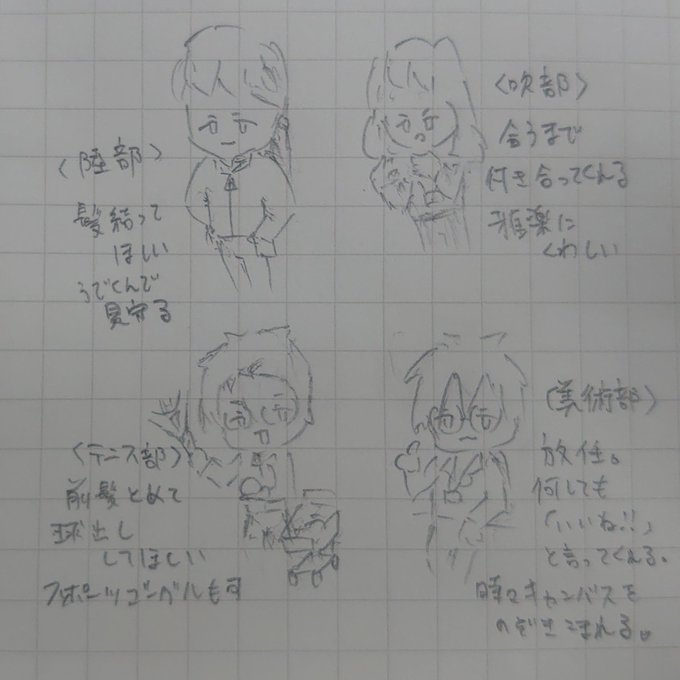 〈陸部〉
髪結って
ほしい
うでくんで
見守る
〈吹部〉
合うまで
付き合ってくれる
雅楽に
くわしい
〈テニス部〉
前髪とめて
球出し
してほしい
スポーツゴーグルもす
〈美術部〉
放任。
何しても
「いいね!!」
と言ってくれる。
時々キャンバスを
のぞきこまれる。